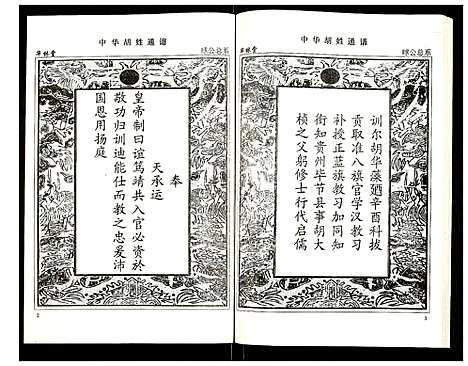 中华胡姓通谱
华林堂
奉
天承运
皇帝制曰谊笃靖共入官必资於
敬功归训迪能仕而教之忠爰沛
国恩用扬庭
2
中华胡姓通谱
华林堂
球公总系
训尔胡华藻廼辛酉科拔
贡取准八旗官学汉教习
补授正蓝旗教习加同知
衔知贵州毕节县事胡大
桢之父躬修士行代启儒
3